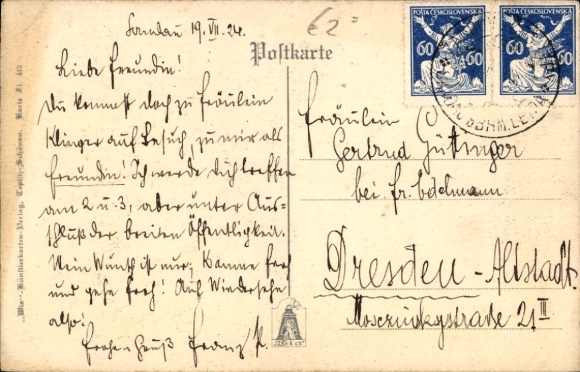 Sandau 19.VII.24.
€ 2,-
Postkarte
POŠTA ČESKOSLOVENSKÁ
60 60
POŠTA ČESKOSLOVENSKÁ
60 60
Liebe Freundin!
Du kommst doch zu Fräulein
Klinger auf Besuch, zu mir als
Freundin! Ich werde Dich treffen
am 2 u. 3, aber unter Aus-
schluß der breiten Öffentlichkeit.
Mein Wunsch ist nur; Komme froh
und gehe froh! Auf Wiedersehn
also!
Frohen Gruß Franz P.
Fräulein
Gertrud Güttinger
bei Fr. Edelmann
Dresden-Altstadt.
Mosczinskystraße 21 II
-Künstlerkarten-Verlag, Teplitz-Schönau.